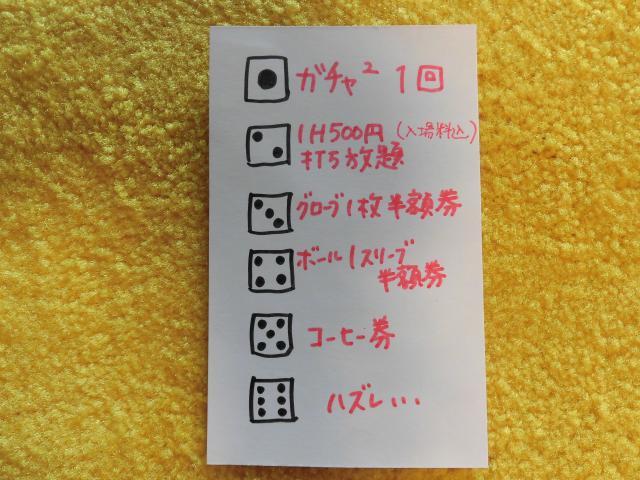 ガチャ² 1回
1H500円(入場料込)
打ち放題
グローブ1枚半額券
ボール1スリーブ
半額券
コーヒー券
ハズレ...